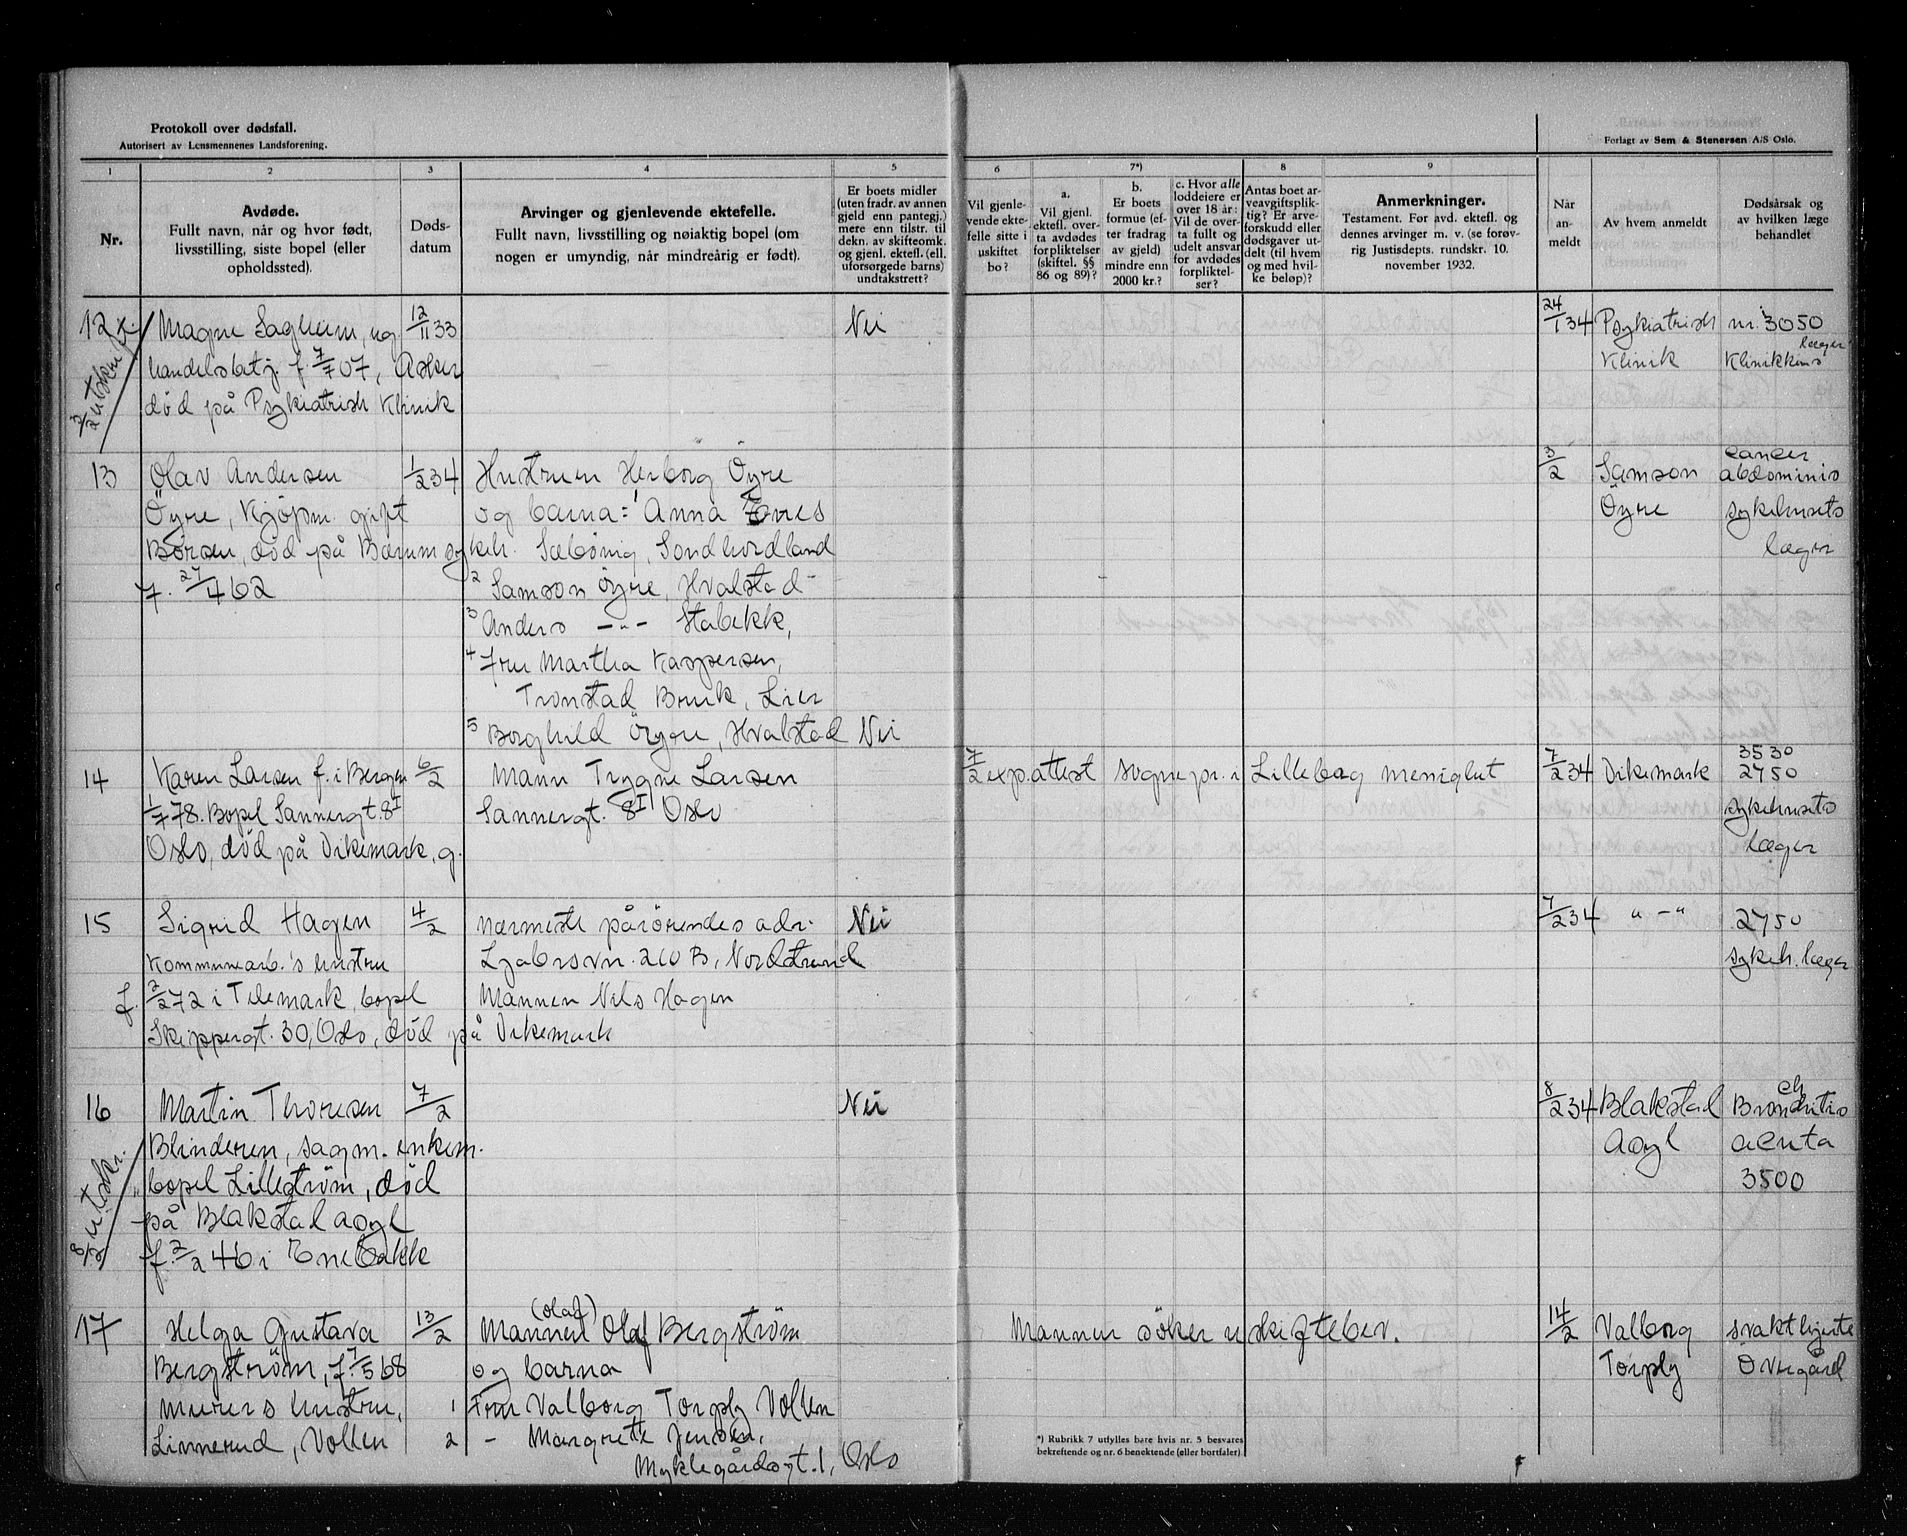 Protokoll over dødsfall.
Autorisert av Lensmennenes Landsforening.
Forlagt av Sem & Stenersen A/S Oslo.
1 2 3 4 5 6 7*) 8 9
Nr.
Avdøde.
Fullt navn, når og hvor født,
livsstilling, siste bopel (eller
opholdssted).
Døds-
datum
Arvinger og gjenlevende ektefelle.
Fullt navn, livsstilling og nøiaktig bopel (om
nogen er umyndig, når mindreårig er født).
Er boets midler
(uten fradr. av annen
gjeld enn pantegj.)
mere enn tilstr. til
dekn. av skifteomk.
og gjenl. ektefl. (ell.
uforsørgede barns)
undtakstrett?
Vil gjenle-
vende ekte-
felle sitte i
uskiftet
bo?
a.
Vil gjenl.
ektefl. over-
ta avdødes
forpliktelser
(skiftel. §§
86 og 89)?
b.
Er boets
formue (ef-
ter fradrag
av gjeld)
mindre enn
2000 kr.?
c. Hvor alle
loddeiere er
over 18 år:
Vil de over-
ta fullt og
udelt ansvar
for avdødes
forpliktel-
ser?
Antas boet ar-
veavgiftsplik-
tig? Er arve-
forskudd eller
dødsgaver ut-
delt (til hvem
og med hvil-
ke beløp)?
Anmerkninger.
Testament. Før avd. ektefl. og
dennes arvinger m. v. (se forøv-
rig Justisdepts. rundskr. 10.
november 1932.
Når
an-
meldt
Av hvem anmeldt
Dødsårsak og
av hvilken læge
behandlet
12
2/2 utskr.
Magne Sagheim, ug
handelsbetj. f. 7/7 07, Asker
død på Psykiatrisk Klinik
12/11 33
Nei
24/1 34
Psykiatrisk
Klinik
nr. 3050
læger
Klinikkens
13
Olav Andersen
Öyre, Kjøpm. gift
Börsen, død på Bærum sykeh.
f. 27/4 62
1/2 34
Hustruen Herborg Öyre
og barna: 1 Anna
Sæbövig, Sondhordland
2 Samson Öyre, Hvalstad
3 Anders -"- Stabekk,
4 Fru Martha Kaspersen,
Tronstad Bruk, Lier
5 Borghild Öyre, Hvalstad Nei
3/2
Samson
Öyre
cancer
abdominis
sykehusets
læger
14
Karen Larsen f. i Bergen
1/7 78. Bopel Sannergt. 8 I
Oslo, død på Dikemark, g.
6/2
Mann Trygve Larsen
Sannergt. 8 I Oslo
7/2 exp. attest sognepr. i Lilleborg menighet
7/2 34
Dikemark
3530
2750
sykehusets
læger
15
Sigrid Hagen
Kommunearb.'s hustru
f. 2/2 72 i Telemark, bopel
Skippergt. 30, Oslo, död på Dikemark
4/2
Nærmeste pårörendes adr.
Ljabrovn. 210 B, Nordstrand
Mannen Nils Hagen
Nei
7/2 34
" - "
2750
sykeh. læger
16
8/2 utskr.
Martin Thoresen
Blinderen, sagm. enkem.
bopel Lilleström, död
på Blakstad asyl
f. 2/2 46 i Enebakk
7/2
Nei
8/2 34
Blakstad
Asyl
Bronchitis
acuta
3500
17
Helga Gustava
Bergström, f. 7/5 68
murers hustru,
Linnerud, Vollen
13/2
(Olaf)
Mannen Olaf Bergström
og barna
1 Fru Valborg Torply Vollen
2 - Margrete Jensen,
Myklegårdsgt. 1, Oslo
Mannen söker uskiftebev.
14/2
Valborg
Torply
svakt hjerte
Övergård
*) Rubrikk 7 utfylles bare hvis nr. 5 besvares
bekreftende og nr. 6 benektende (eller bortfaler).